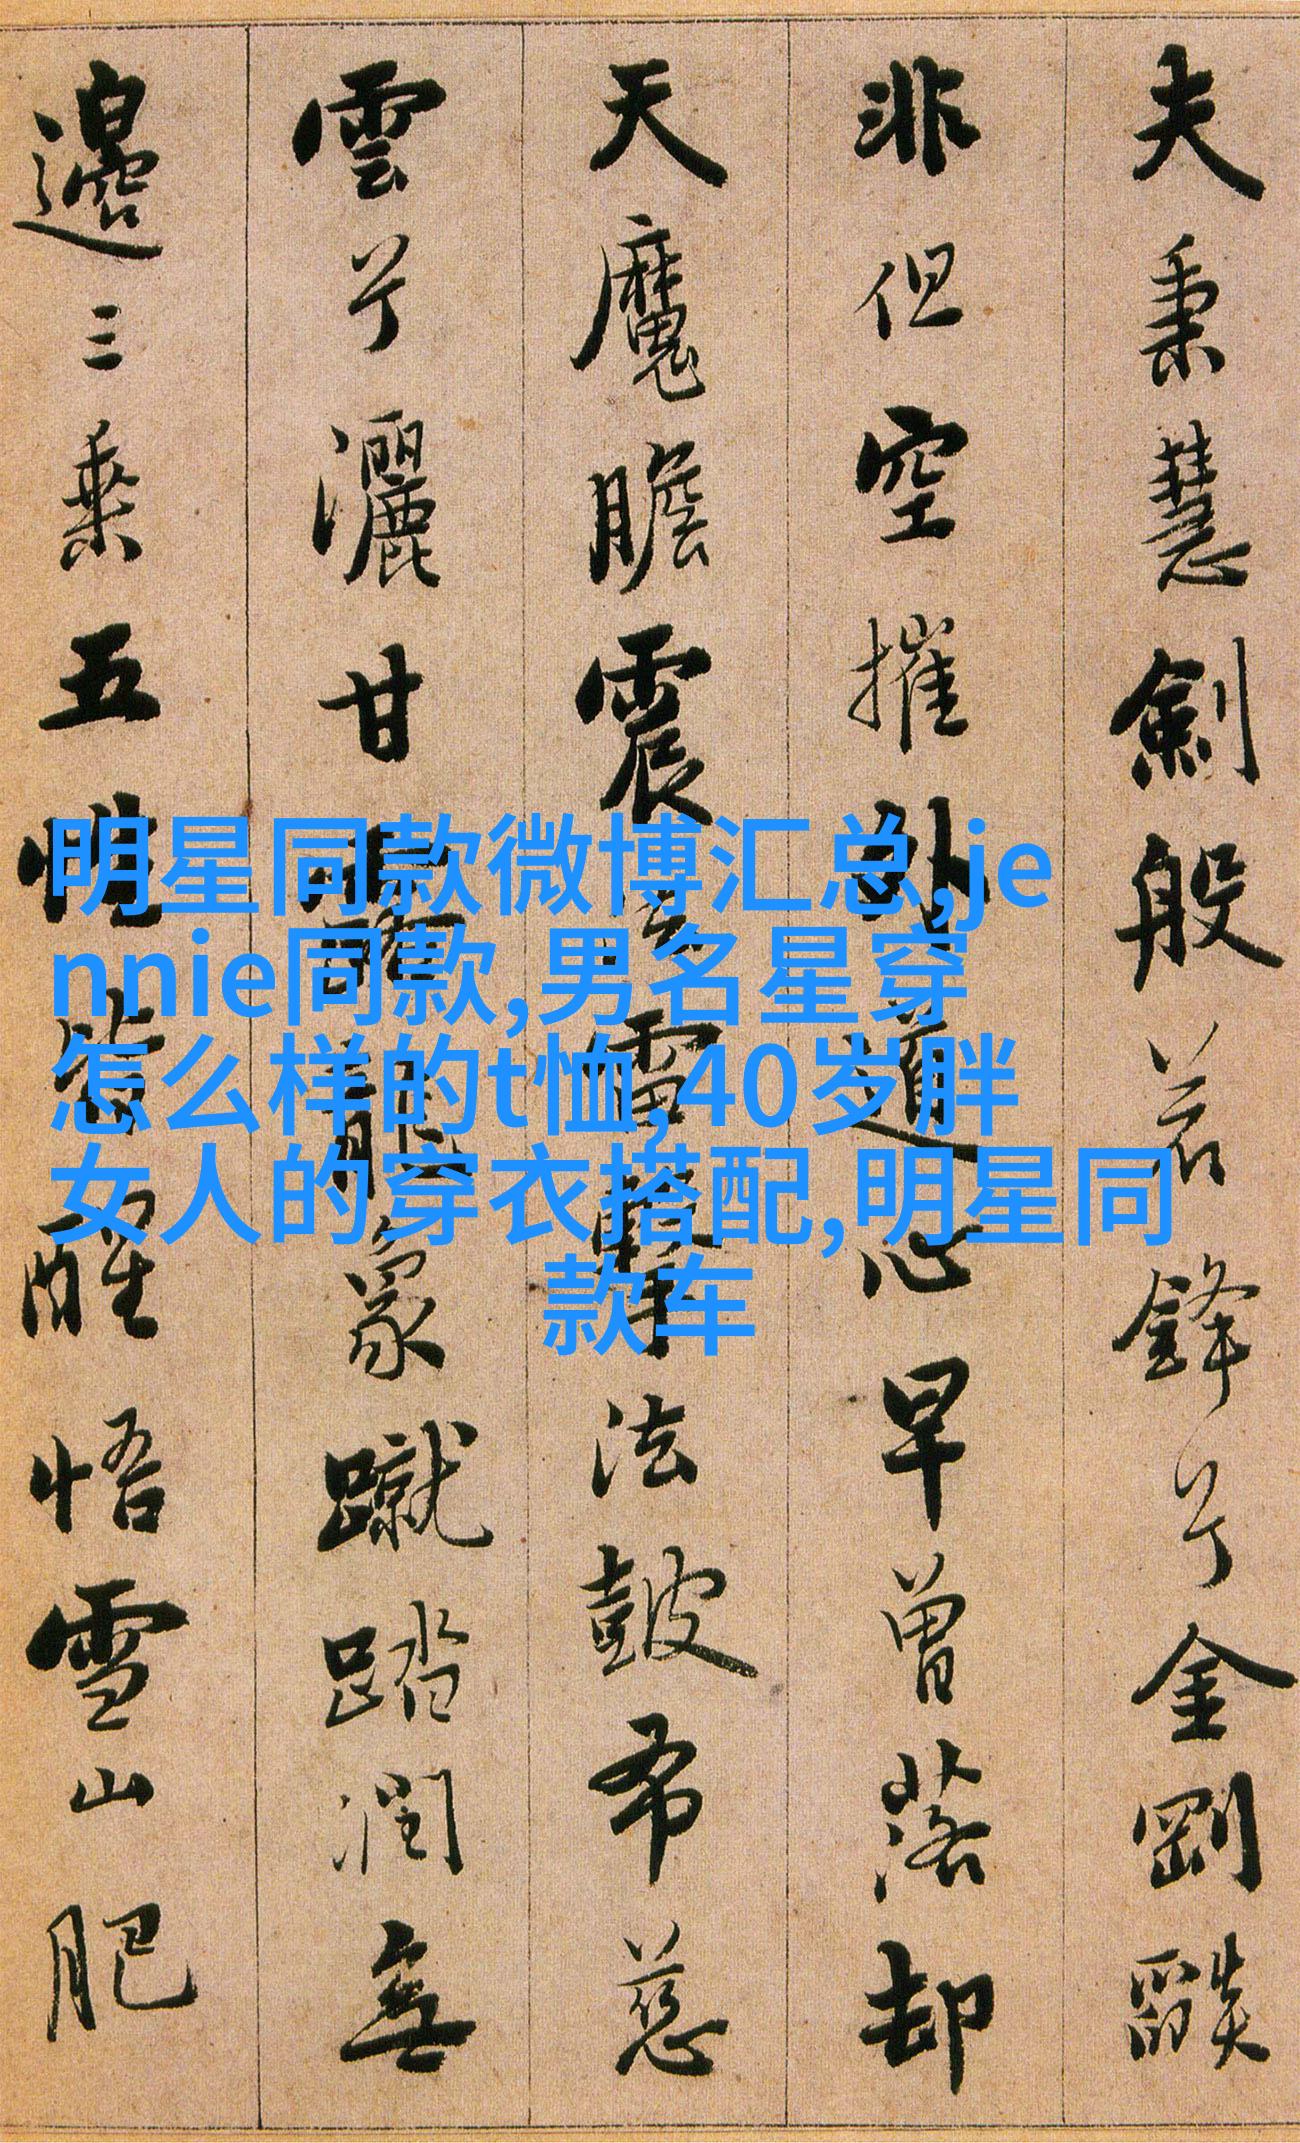 夫秉慧劍般若鋒兮金剛燄
非但空摧外道心早曾落却
天魔膽震法雷擊法皷布慈
雲兮灑甘露龍象蹴踏潤無
邊三乘五性皆醒悟雪山肥
明星同款微博汇总,je
nnie同款,男名星穿
怎么样的t恤,40岁胖
女人的穿衣搭配,明星同
款车